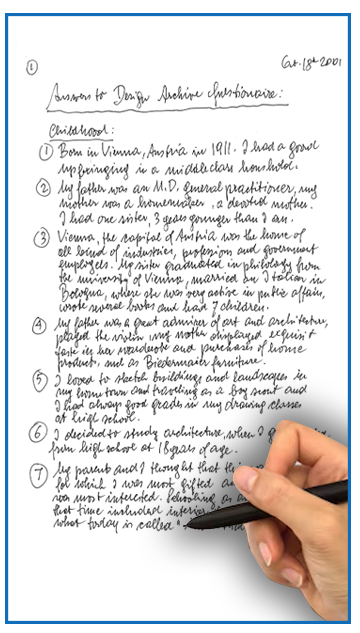 ①
Oct. 18th 2001
Answers to Design Archive Questionaire:
Childhood:
① Born in Vienna, Austria in 1911. I had a good
upbringing in a middleclass houshold.
② My father was an M.D. general practitioner, my
mother was a homemaker, a devoted mother.
I had one sister, 3 years younger than I am.
③ Vienna, the capital of Austria was the home of
all kind of industries, professions and government
employees. My sister graduated in philology from
the university of Vienna, married an Italian in
Bologna, where she was very active in public affairs,
wrote several books and had 7 children.
④ My father was a great admirer of art and architecture,
played the violin my mother displayed exquisit
taste in her wardrobe and purchases of house
product, such as Biedermaier furniture.
⑤ I loved to sketch buildings and landscapes in
my hometown and travelling as a boy scout and
I had always good grades in my drawing classes
at high school.
⑥ I decided to study architecture, when I
from high school at 18 years of age.
⑦ My parent and I thought that this
for which I was most gifted
was most interested. Schooling as
that time included interior
what today is called "